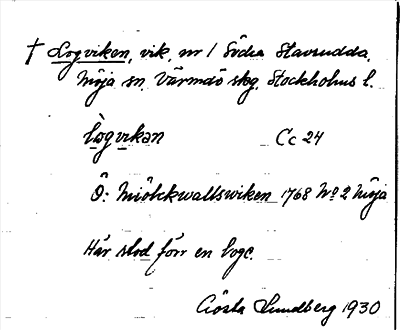 † Logviken, vik, nr 1 Södra Stavsudda,
Möja sn, Värmdö skg, Stockholms l.
lògvikən Cc 24
Ö: Miölckwallswiken 1768 No 2 Möja
Här stod förr en loge.
Gösta Lundberg 1930